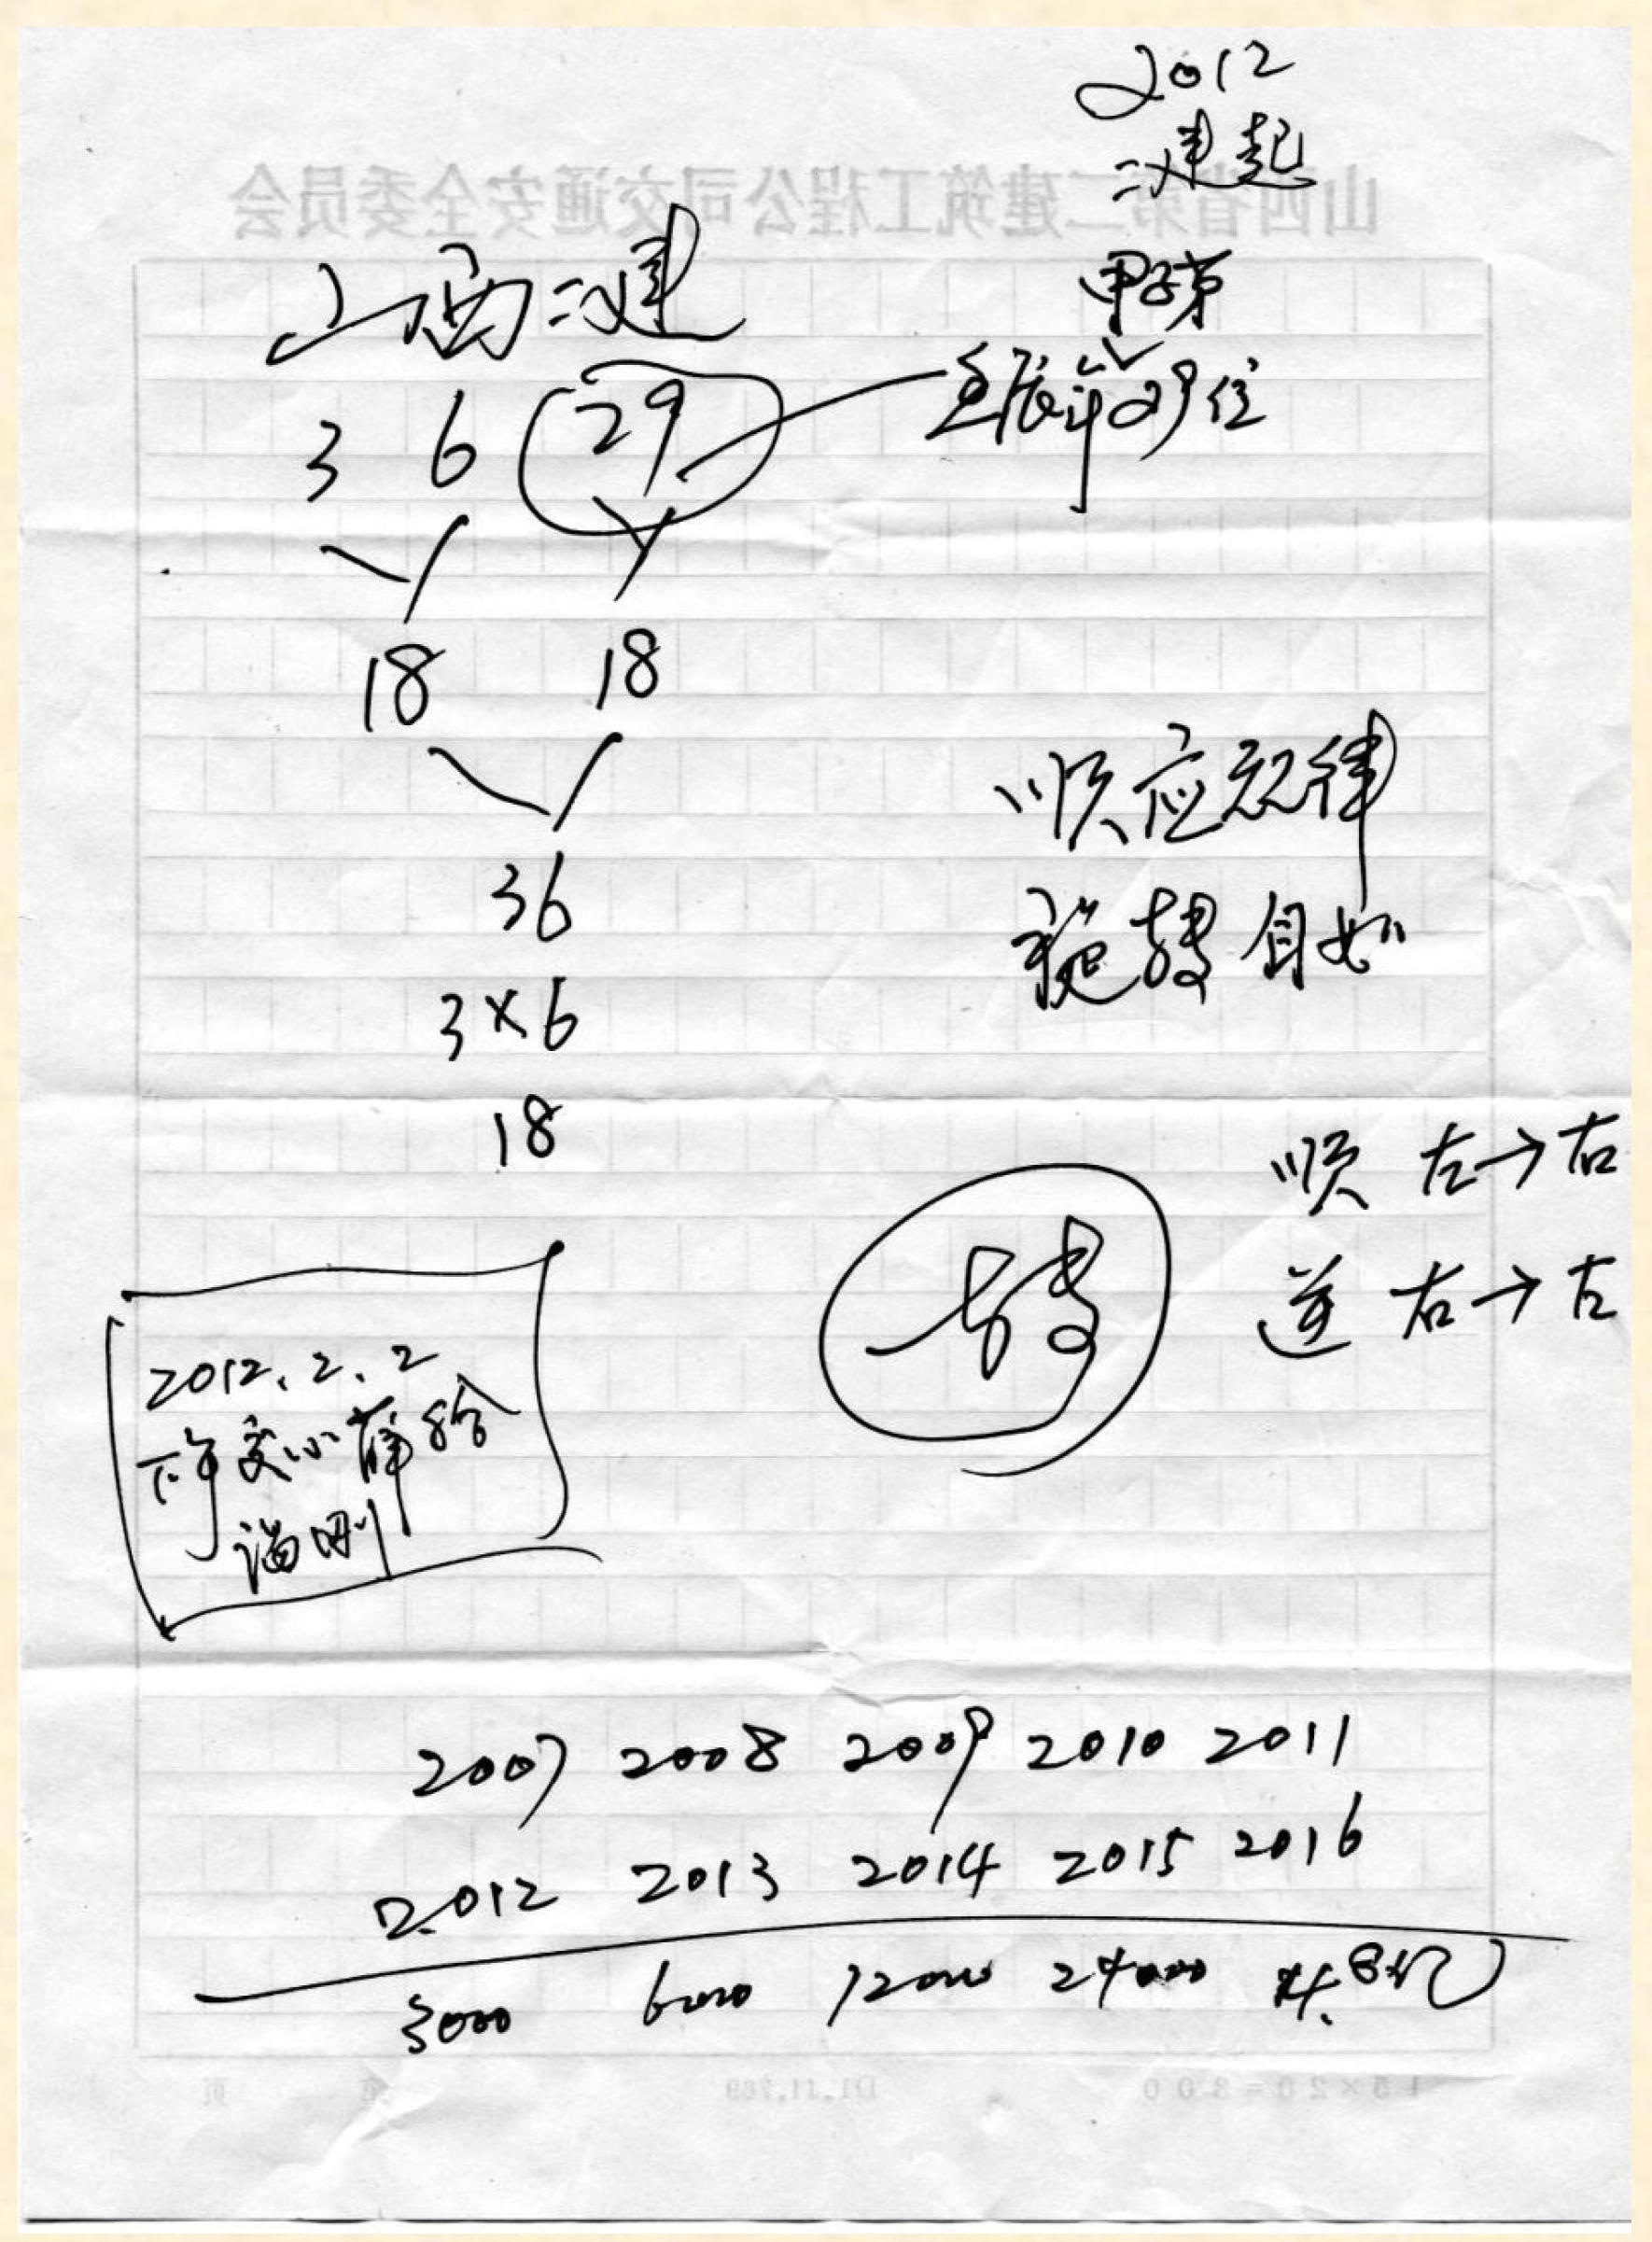 2012
二建起
山西省第二建筑工程公司交通安全委员会
山西二建
甲子第
壬辰年第29位
3 6 29
18 18
36
3×6
18
顺应规律
旋转自如
顺 左→右
逆 右→左
转
2012.2.2
下午交小薛给
2007 2008 2009 2010 2011
2012 2013 2014 2015 2016
3000 6000 12000 24000
15×20=300
第 页